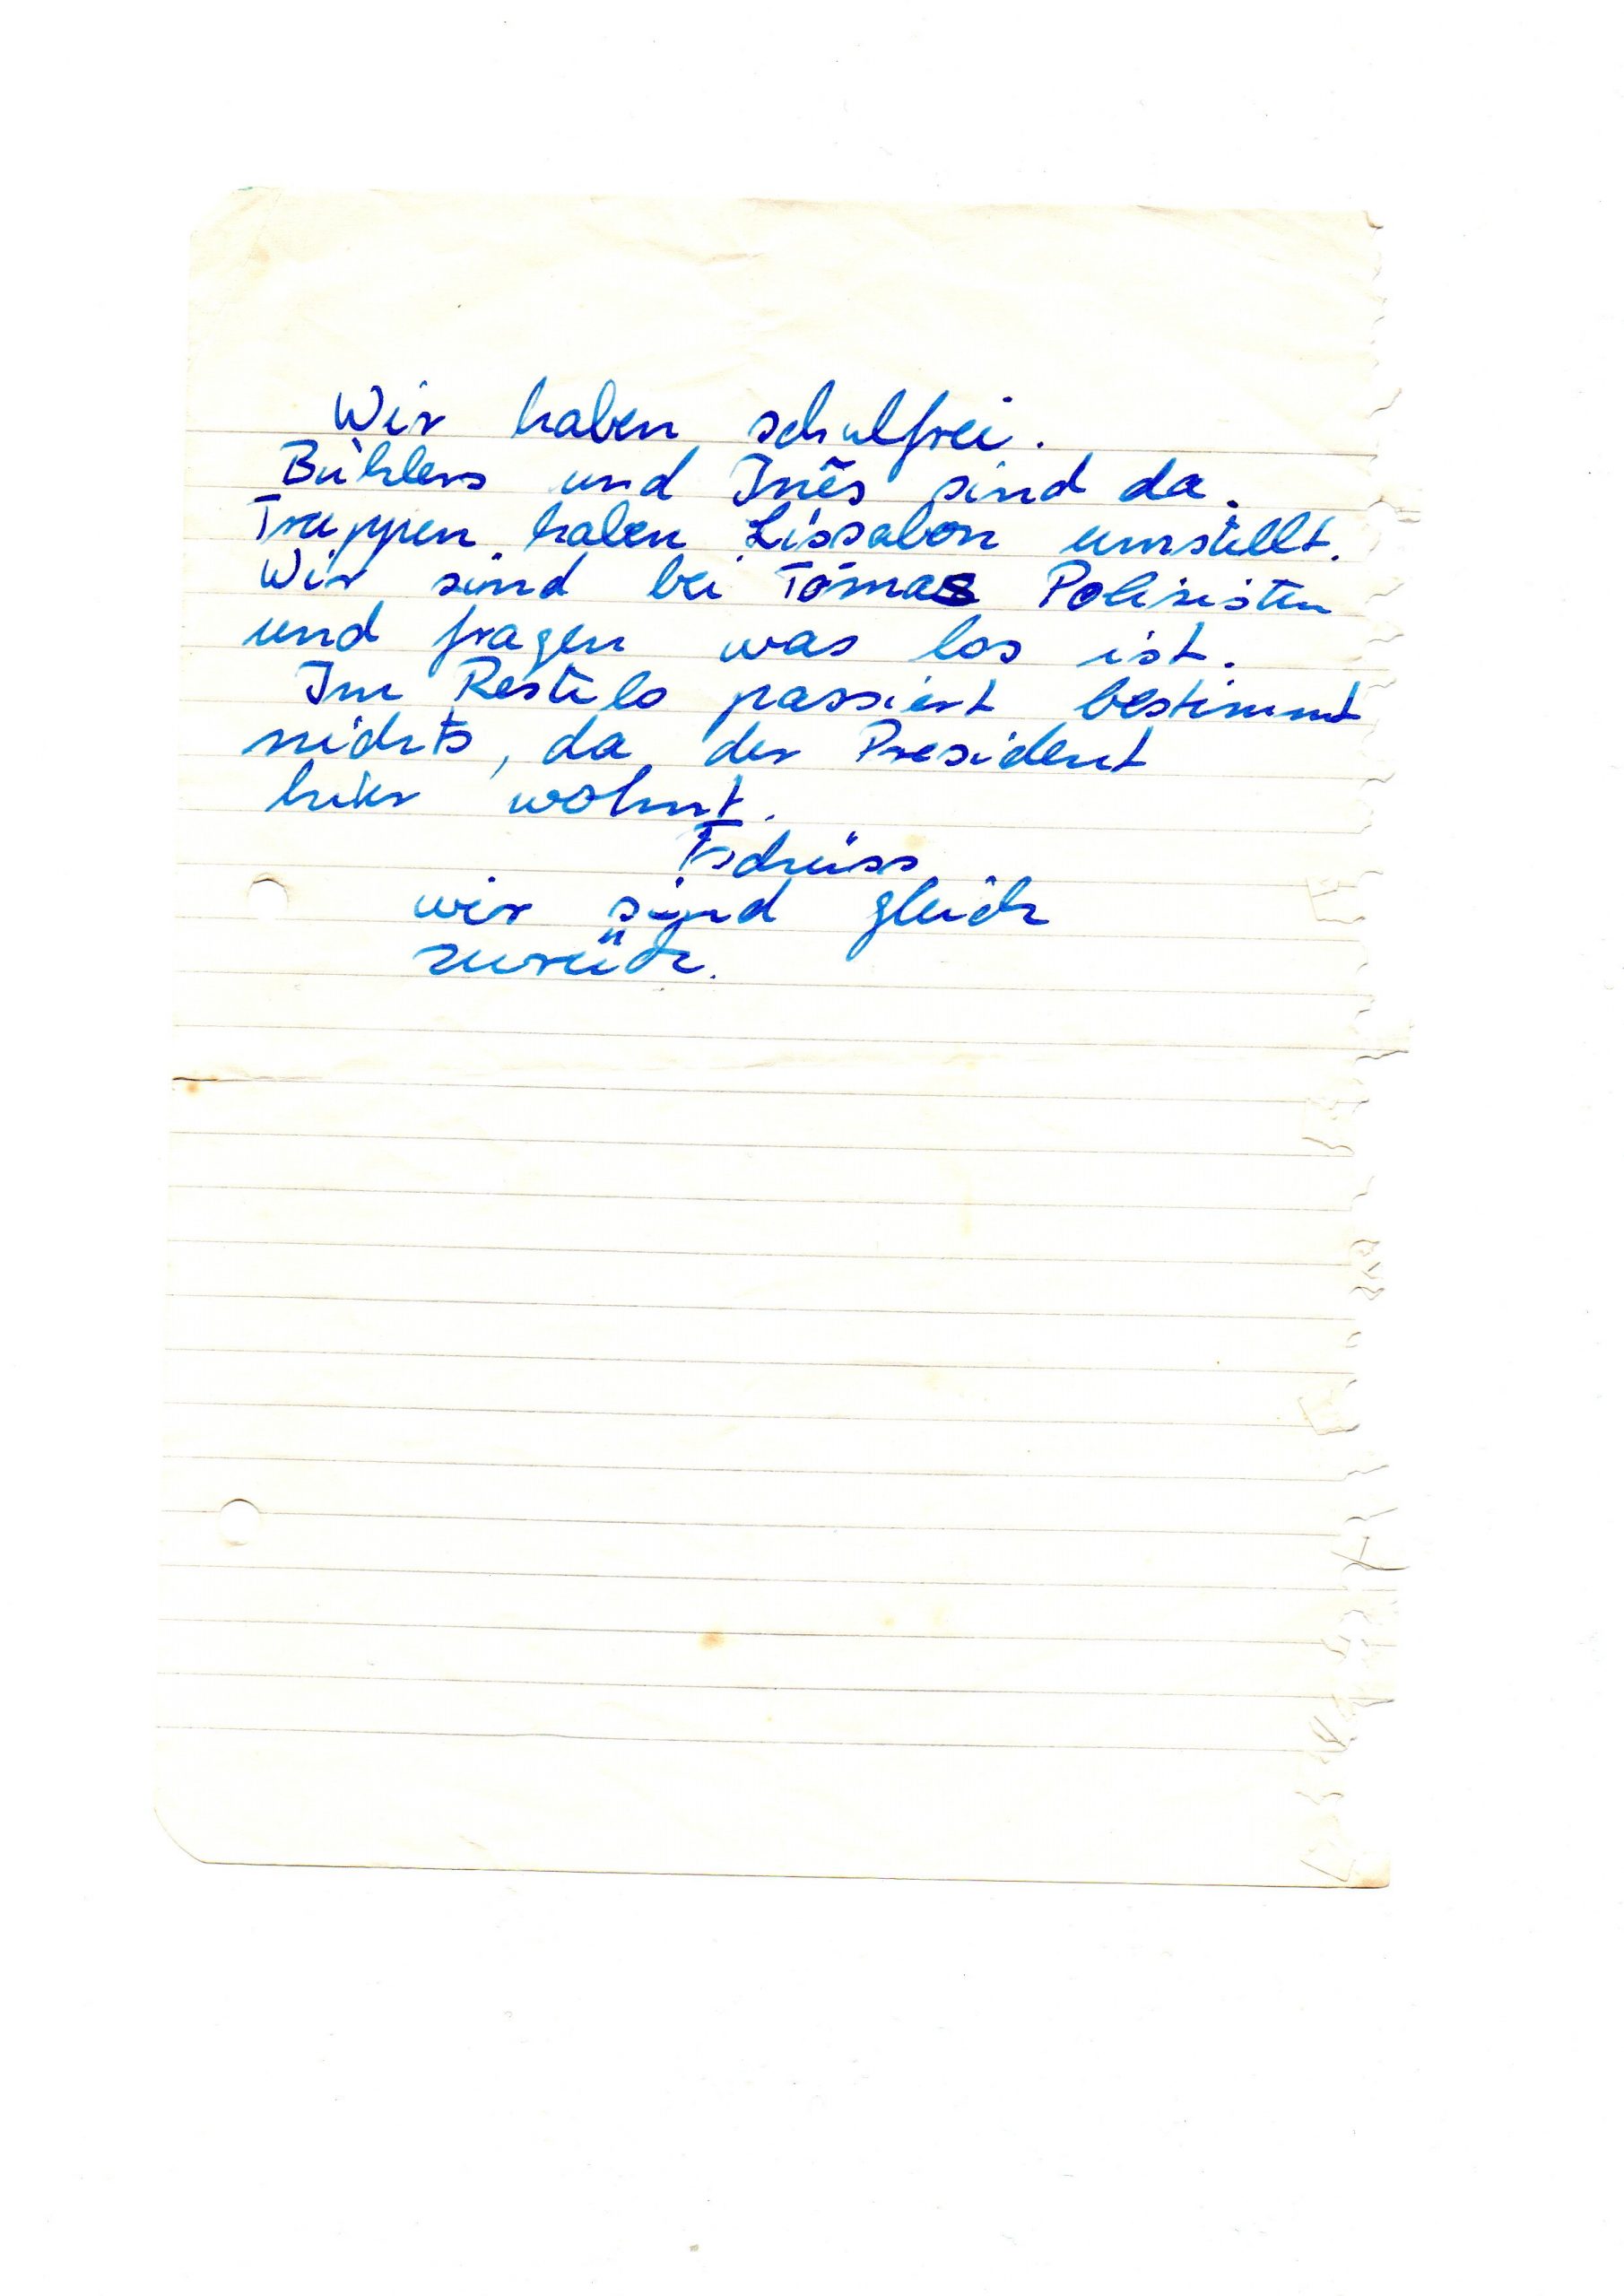 Wir haben schulfrei.
Bühlers und Inês sind da.
Truppen haben Lissabon umstellt.
Wir sind bei Tomas Polisisten
und fragen was los ist.
Im Restelo passiert bestimmt
nichts, da der President
hier wohnt.
Tschüss
wir sind gleich
zurück.